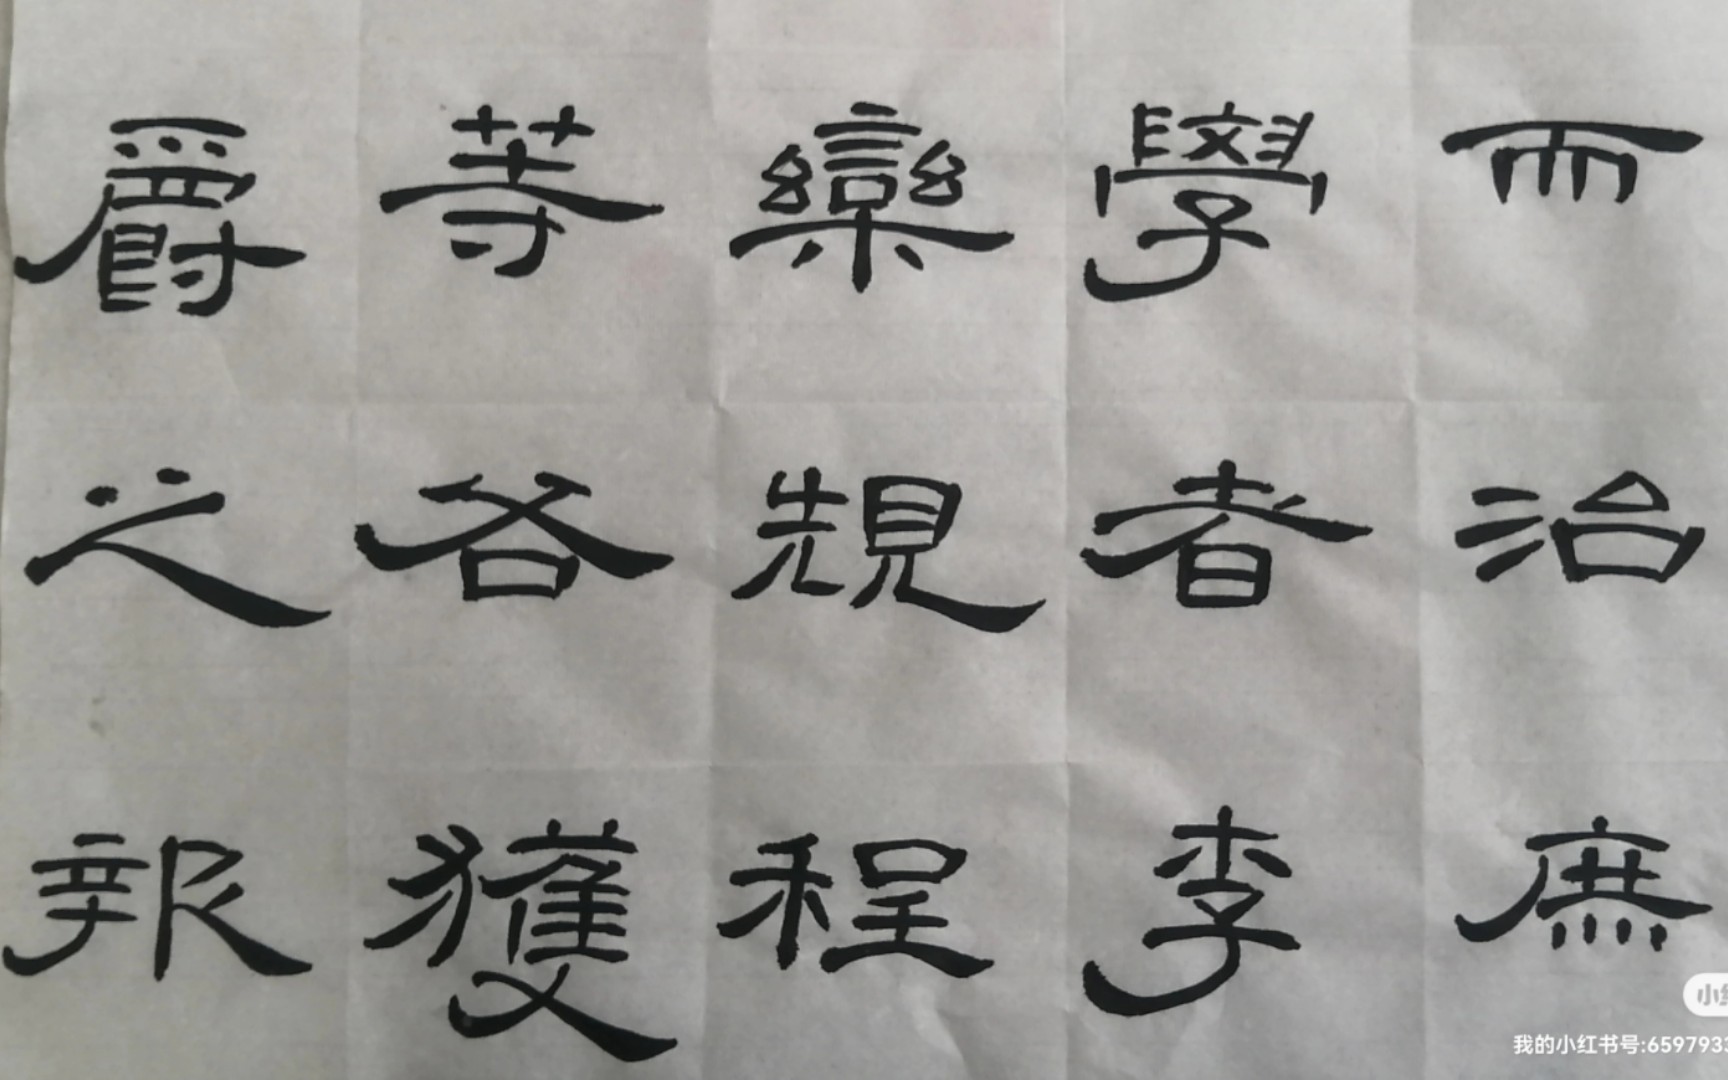 而治庶
學者李
欒規程
等各獲
爵之報
我的小红书号:659793